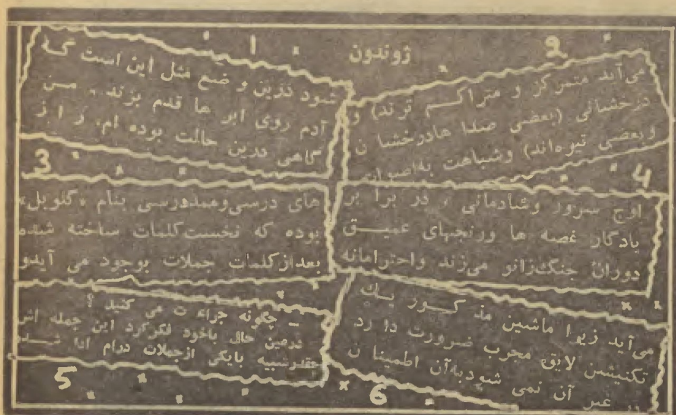 ژوندون
1
شود درین وضع مثل این است که
آدم روی ابر ها قدم بزند ، من
گاهی درین حالت بوده ام، ر ا ز
2
می‌آید متمرکز و متراکم ترند) و
درخشانی (بعضی صدا هادرخشا ن
وبعضی تیره‌اند) وشباهت به
3
های درسی‌وممدرسی بنام «گلوبل»
بوده که نخست‌کلمات ساخته شده
بعدازکلمات جملات بوجود می آیدو
4
اوج سرور وشادمانی ، در برا بر
یادگار غصه ها ورنجهای عمیق
دوران جنگ‌زانو میزند واحترامانه
5
ــ چگونه جراء ت می کنید ؟
درعین حال باخود فکرکرد این جمله اش
چقدرشبیه بایکی ازجملات درام ادا شده
6
می‌آید زیرا ماشین مذ کور بیک
تکنیشن لایق مجرب ضرورت دا رد
در غیر آن نمی شودبه‌آن اطمینا ن